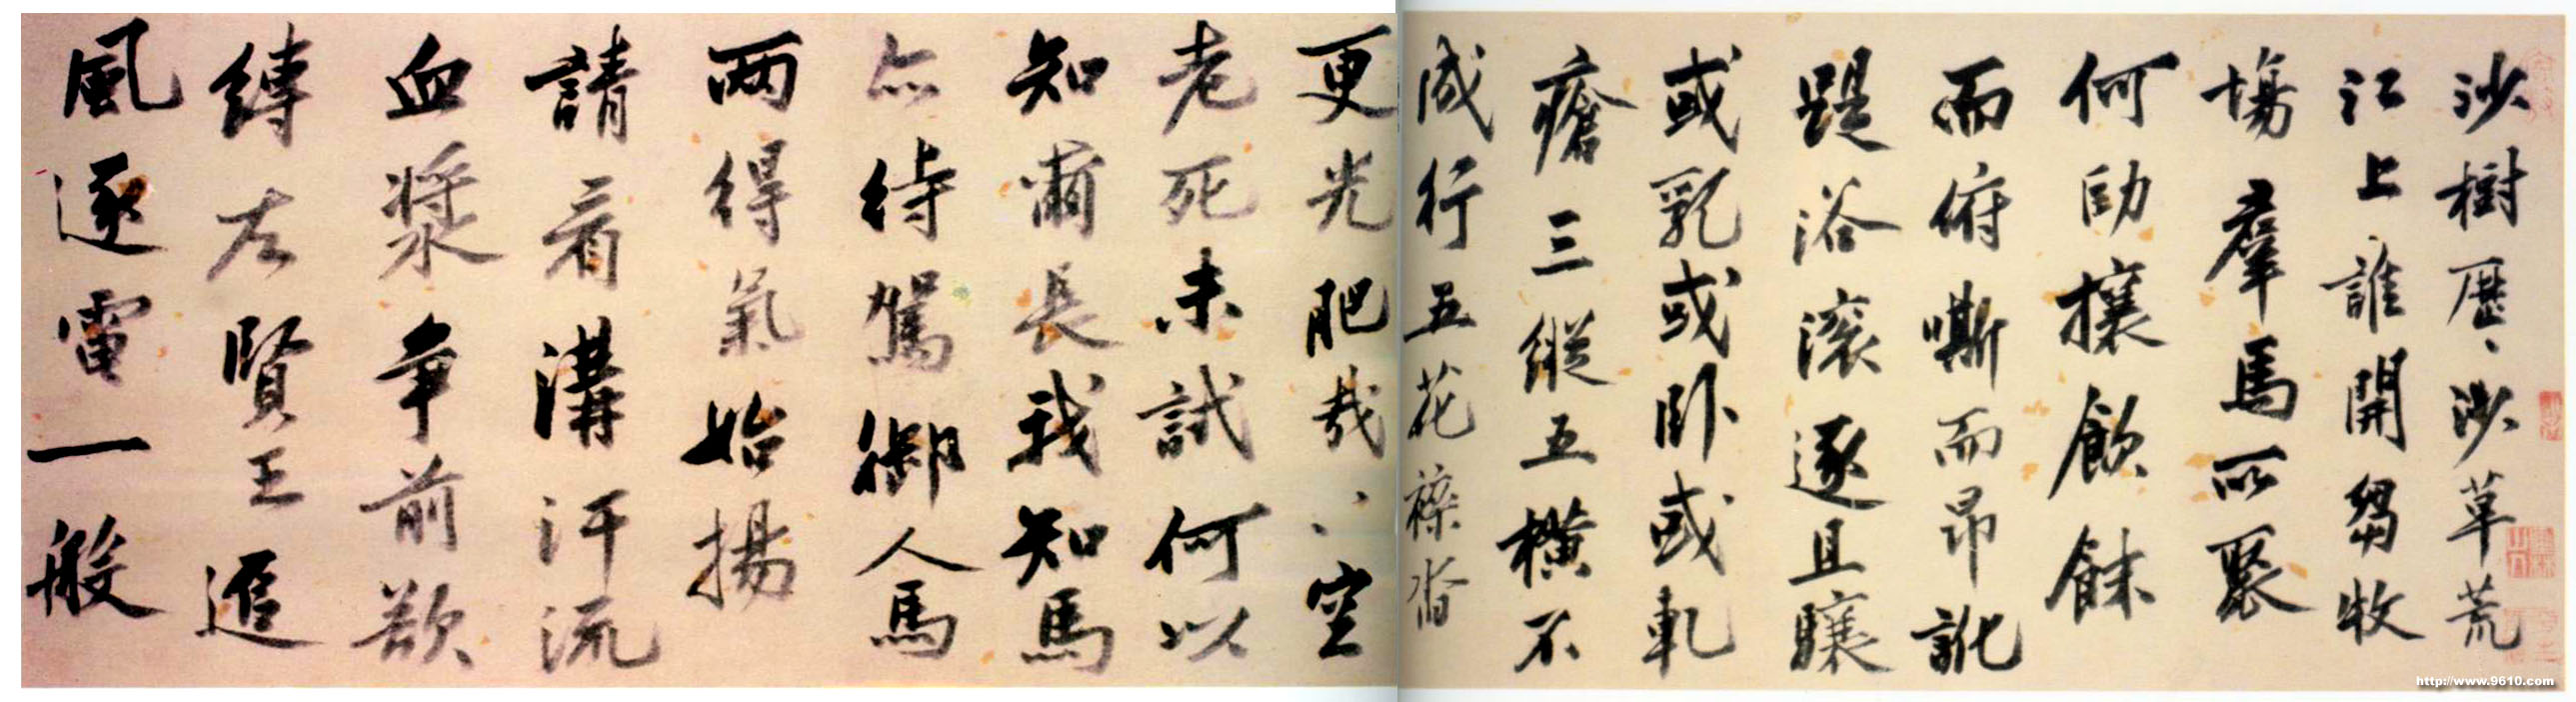 沙樹歷、沙草荒
江上誰開芻牧
場羣馬所聚
何劻攘飲餗
而俯嘶而昂訛
踶浴滾逐且驤
或乳或臥或軋
瘡三縱五橫不
成行五花襍沓
更光肥哉、、空
老死未試何以
知爾長我知馬
亦待駕御人馬
兩得氣始揚
請看溝汗流
血漿爭前欲
縛左賢王追
風逐電一般
http://www.9610.com